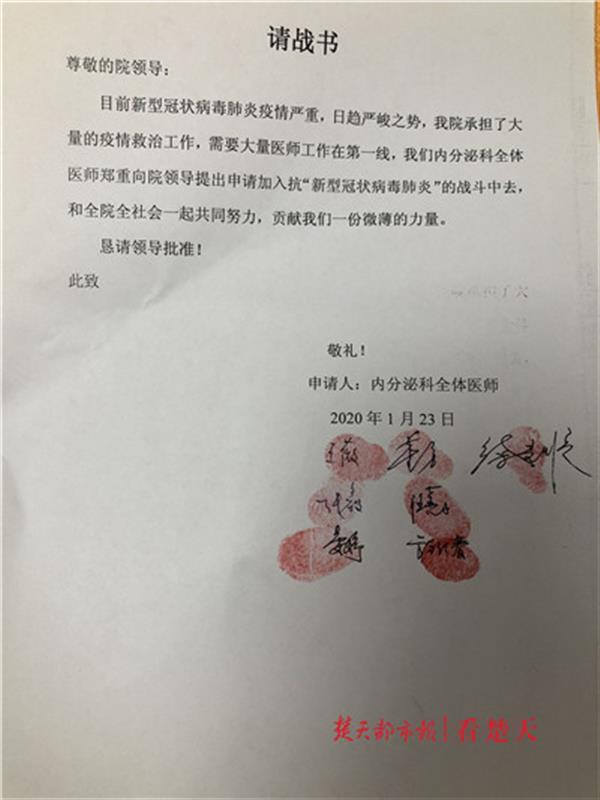 请战书
尊敬的院领导：
目前新型冠状病毒肺炎疫情严重，日趋严峻之势，我院承担了大
量的疫情救治工作，需要大量医师工作在第一线，我们内分泌科全体
医师郑重向院领导提出申请加入抗“新型冠状病毒肺炎”的战斗中去，
和全院全社会一起共同努力，贡献我们一份微薄的力量。
恳请领导批准！
此致
敬礼！
申请人：内分泌科全体医师
2020 年 1 月 23 日
楚天都市报 看楚天